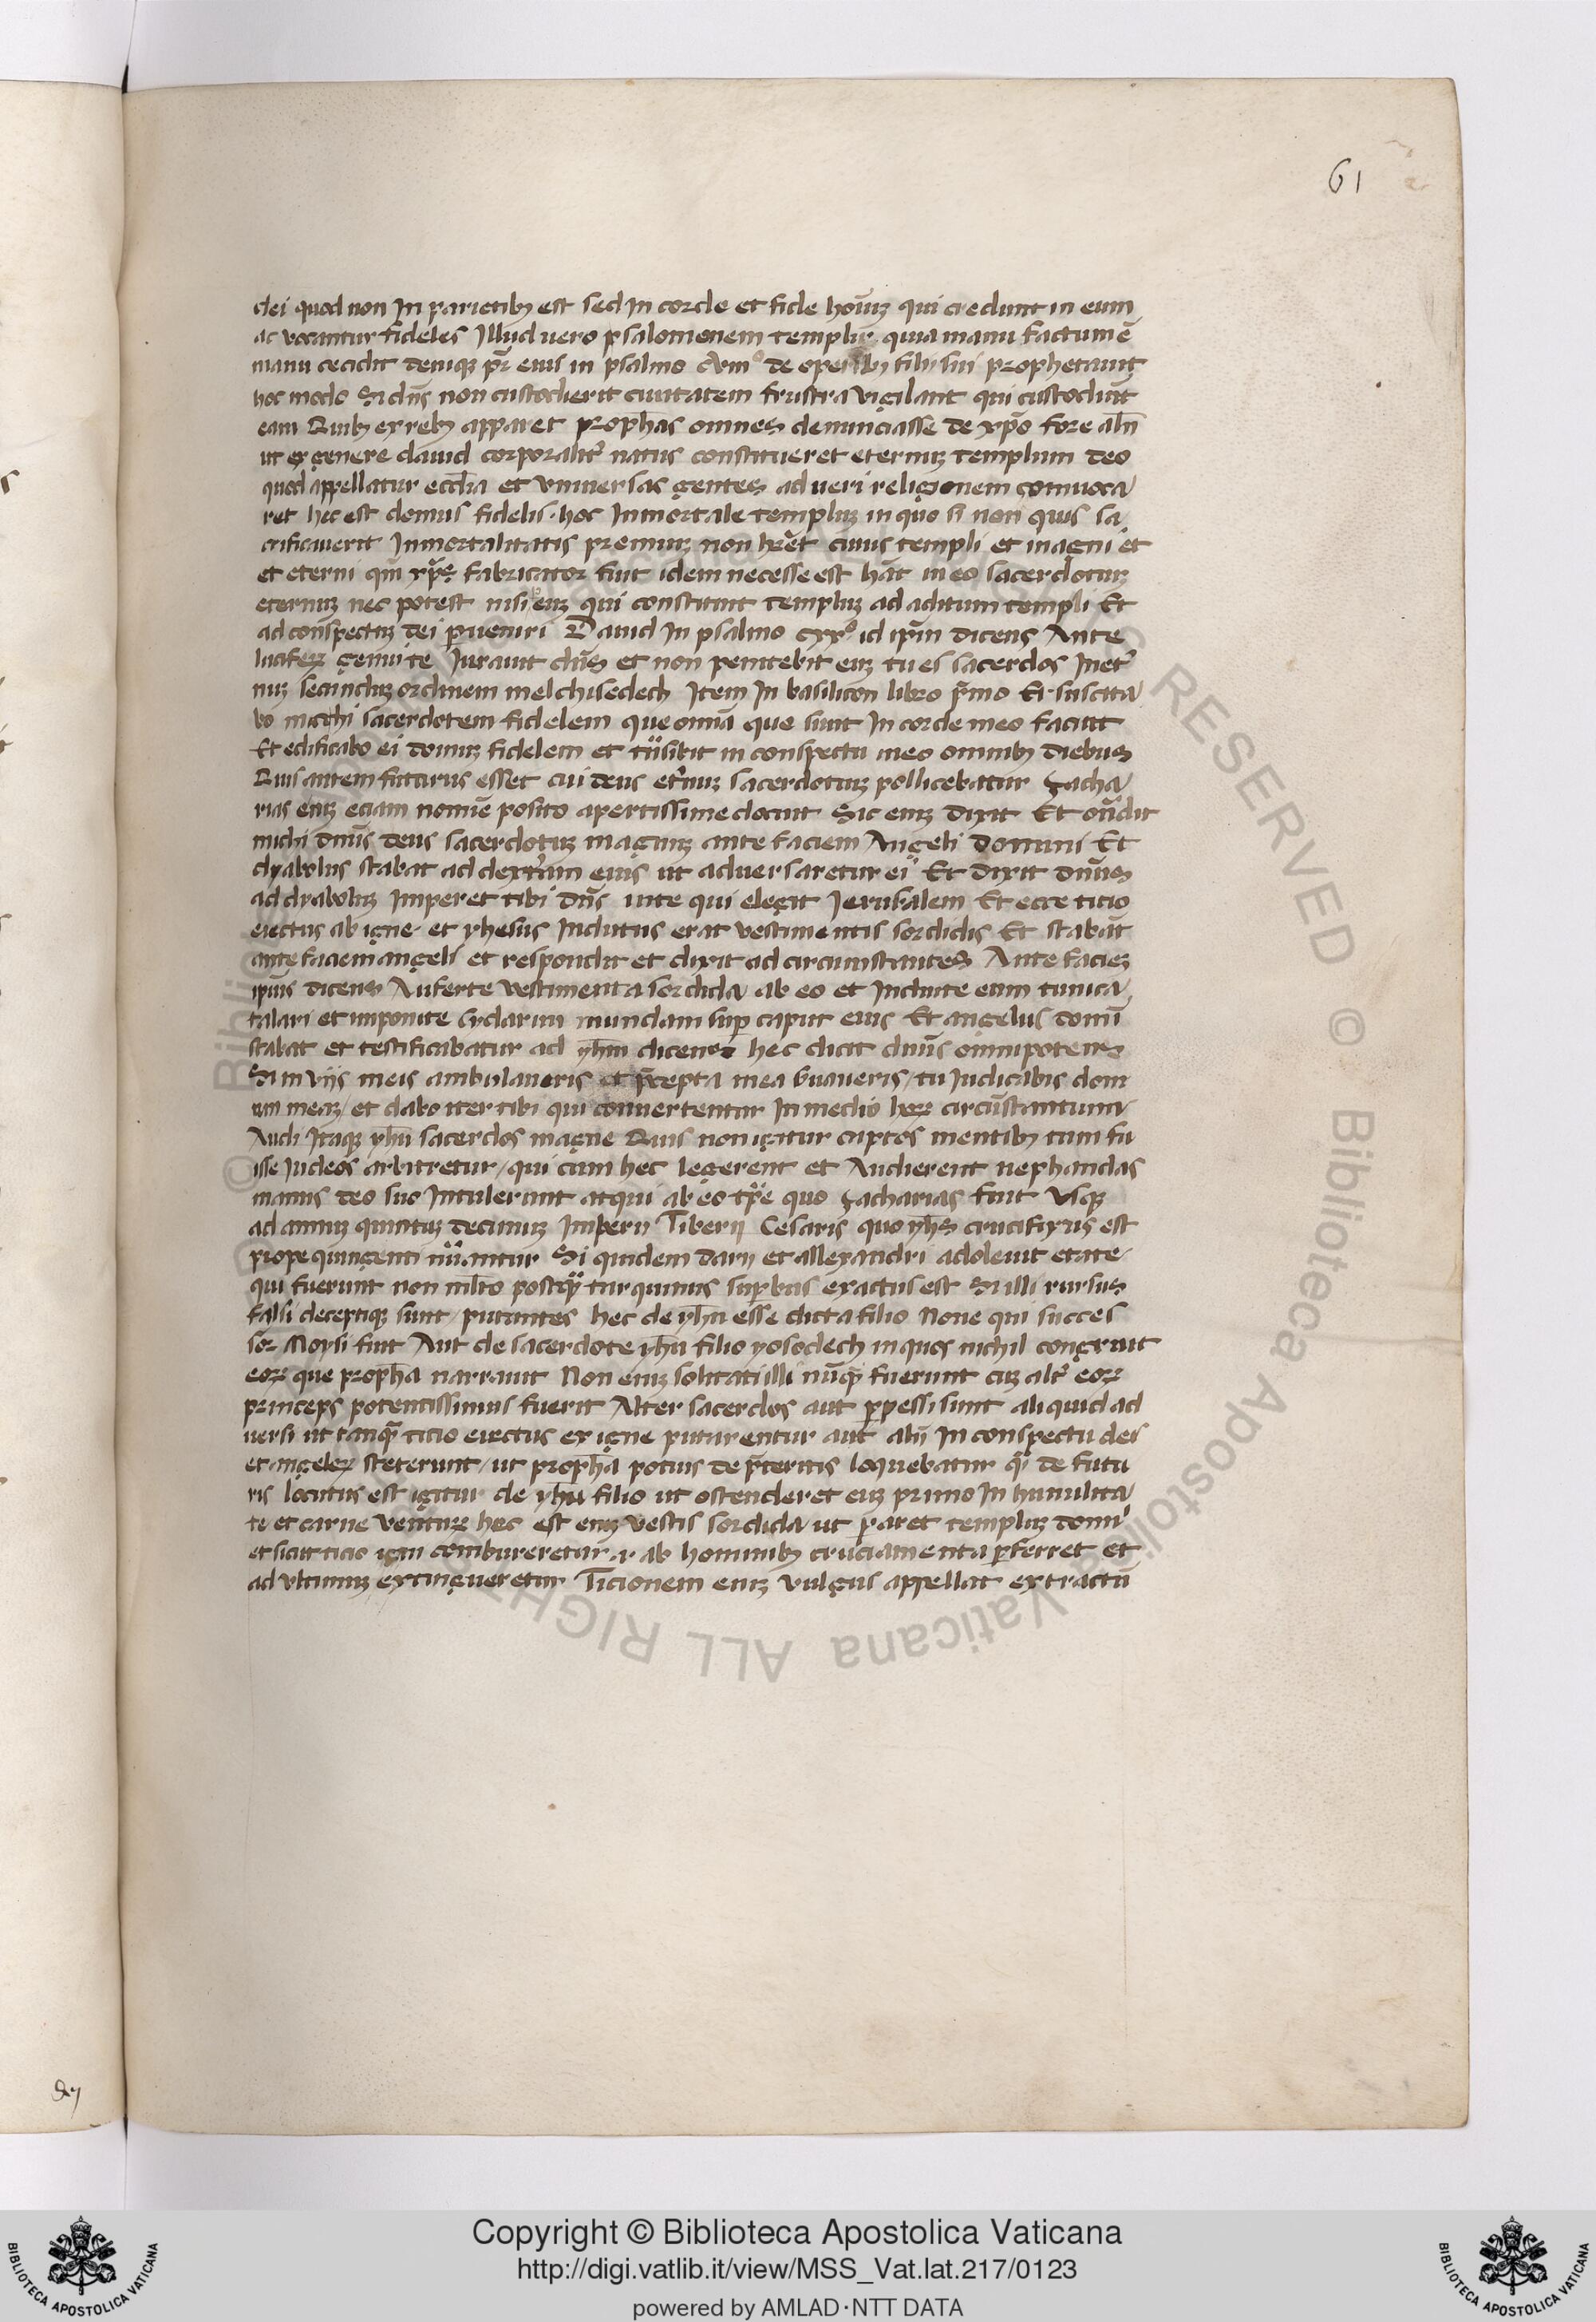 61
dei quod non In parietibꝰ est sed In corde et fide hoı̅uꝫ qui credunt in eum
ac vocantur fideles Illud uero psalomonem templuꝫ quia manu factum ē
manu cecidit deniqꝫ pr̄ eius in psalmo cvmº de operibꝰ filii sui prophetauit
hoc modo Si dn̄s non custodierit ciuitatem frustra vigilant qui custodiūt
eam Quibꝰ ex rebꝰ apparet proph̄as omnes denunciasse de xp̄o fore aln̄
ut ex genere dauid corporalit᷑ natus constitueret eternuꝫ templum deo
quod appellatur eccl̄ia et vniuersas gentes ad ueri religionem conuoca
ret hec est domus fidelis · hoc Inmortale templuꝫ in quo si non quis sa
crificauerit Inmortalitatis premiuꝫ non hr̄et cuius templi et magni et
et eterni qm̄ xp̄e fabricator fuit idem necesse est hāt in eo sacerdotiuꝫ
eternuꝫ nec potest nisi euꝫ qui constituit templuꝫ ad aditum templi Et
ad conspectuꝫ dei ꝑueniri Dauid In psalmo cxxº id ip̄m dicens Ante
luciferꝫ genui te Iurauit dn̄s et non penitebit euꝫ tu es sacerdos In et᷑
nuꝫ secunduꝫ ordinem melchisedech Item In basilicon libro pͥmo Et suscita
bo michi sacerdotem fidelem que omīa que sunt In corde meo faciat
Et edificabo ei domuꝫ fidelem et tn̄sibit in conspectu meo omnibꝰ diebus
Quis autem futurus esset cui deus et᷑nuꝫ sacerdotiuꝫ pollicebatur zacha
rias eniꝫ eciam nomīe posito apertissime docuit Sic eniꝫ dixit Et on̄dit
michi dn̄us deus sacerdotuꝫ magnuꝫ ante faciem Angeli Domini Et
dyabolus stabat ad dext᷑am eius ut aduersaretur ei Et dixit dn̄us
ad dyaboluꝫ Imperet tibi dn̄s in te qui elegit Ierusalem Et ecce ticio
eiectus ab igne · et yhesus Indutus erat vestimentis sordidis Et stabāt
ante faciem angeli et respondit et dixit ad circumstantes Ante facieꝫ
ipius dicens Auferte vestimenta sordida ab eo et Induite eum tunica
talari et imponite cydarim mundam suꝑ caput eius Et angelus domī
stabat et testificabatur ad yhm̄ dicens hec dicit dn̄us omnipotens
Si in viis meis ambulaueris et p̄cepta mea ẜuaueris / tu Iudicabis dom
um meaꝫ / et dabo iter tibi qui conuertentur In medio hoꝝ circūstantium
Audi Itaqꝫ yhū sacerdos magne Quis non igitur captos mentibꝰ tum fu
isse Iudeos arbitretur / qui cum hec legerent et Audierent nephandas
manus deo suo Intulerunt atqui ab eo tꝑe quo zacharias fuit vsqꝫ
ad annuꝫ quintuꝫ decimuꝫ Imperii Tiberii Cesaris quo yhs̄ crucifixus est
prope quingenti nūantur Si quidem darii et allexandri adoleuit etate
qui fuerunt non ml̄to postqͣ tarquinius suꝑbus exactus est Si illi rursus
falsi deceptiqꝫ sunt / putantes hec de yhū esse dicta filio None qui succes
sor Moysi fuit Aut de sacerdote yhū filio yosedech in quos nichil congruit
eoꝝ que proph̄a narrauit Non eniꝫ solitati illi nūqͣ fuerunt cuꝫ alt᷑ eoꝝ
princeps potentissimus fuerit Alter sacerdos aut ꝑpessi sunt aliquid ad
uersi ut tanqͣ ticio eiectus ex igne putarentur aut alii In conspectu dei
et angeloꝝ steterunt / ut proph̄a potius de p̄teritis loquebatur qͣ de futu
ris locutus est igitur de yhū filio ut ostenderet euꝫ primo In humilita
te et carne venturꝫ hec est eniꝫ vestis sordida ut ꝑaret templuꝫ domī
et sicut ticio igni combureretur ·i· ab hominibꝰ cruciamenta ꝑferret et
ad vltimuꝫ extingueretur Ticionem eniꝫ vulgus appellat extractū
Copyright © Biblioteca Apostolica Vaticana
http://digi.vatlib.it/view/MSS_Vat.lat.217/0123
powered by AMLAD·NTT DATA
BIBLIOTECA APOSTOLICA VATICANA
BIBLIOTECA APOSTOLICA VATICANA
© Biblioteca Apostolica Vaticana ALL RIGHTS RESERVED